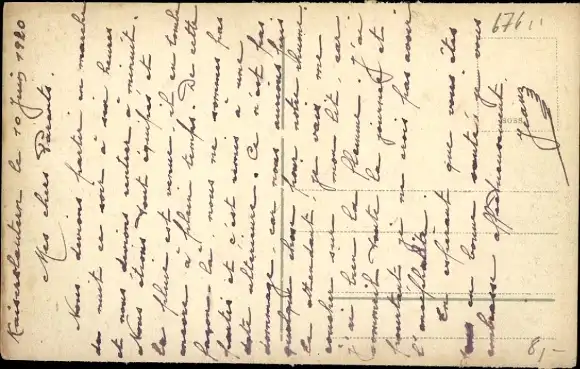 Kaiserslautern le 10 Juin 1920
Mes chers Parents.
Nous devions partir en marche
de nuit ce soir à six heures
et nous devions rentrer à minuit.
Nous étions tout équipés et
la pluie est venue, et il en tombe
encore à plein temps. De cette
façon là, nous ne sommes pas
partis et c'est remis à une
date ultérieure. Ce n'est pas
dommage, car nous aurions bien
quelque chose pour notre rhume.
En attendant, je vais me
coucher sur mon lit, car
j'ai bien la flemme. J'ai
toute la journée et
pourtant je ne crois pas avoir
En espérant que vous êtes
tous en bonne santé, je vous
embrasse affectueusement.
Jean
676
8,-